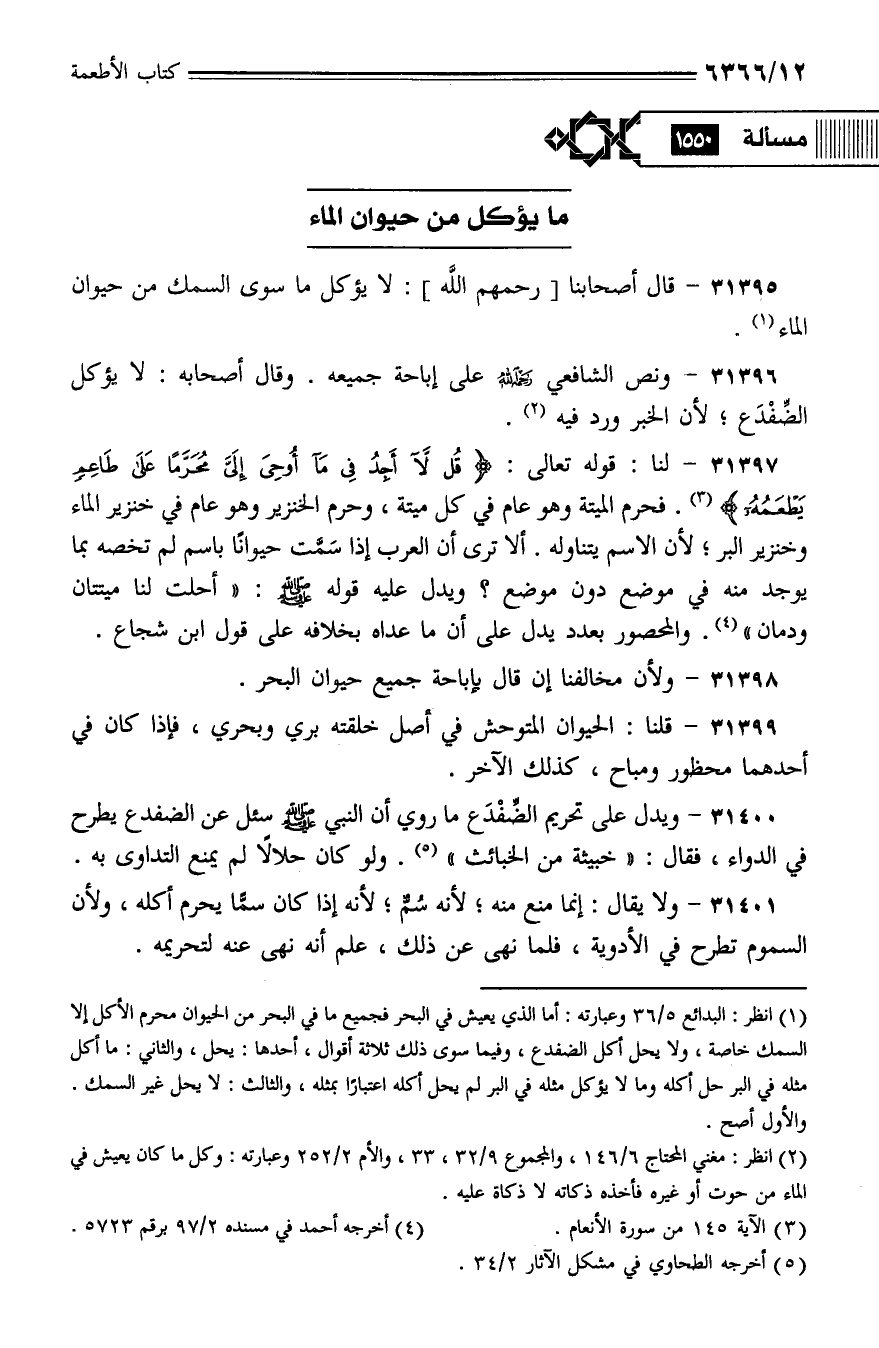 ٦٣٦٦/١٢ كتاب الأطعمة
مسألة ١٥٥٠
ما يؤكل من حيوان الماء
٣١٣٩٥ - قال أصحابنا [ رحمهم اللَّه ] : لا يؤكل ما سوى السمك من حيوان
الماء (١) .
٣١٣٩٦ - ونص الشافعي رحمه الله على إباحة جميعه . وقال أصحابه : لا يؤكل
الضِّفْدَع ؛ لأن الخبر ورد فيه (٢) .
٣١٣٩٧ - لنا : قوله تعالى : ﴿ قُل لَّآ أَجِدُ فِي مَآ أُوحِيَ إِلَيَّ مُحَرَّمًا عَلَىٰ طَاعِمٍ
يَطْعَمُهُۥٓ ﴾ (٣) . فحرم الميتة وهو عام في كل ميتة ، وحرم الخنزير وهو عام في خنزير الماء
وخنزير البر ؛ لأن الاسم يتناوله . ألا ترى أن العرب إذا سَمَّت حيوانًا باسم لم تخصه بما
يوجد منه في موضع دون موضع ؟ ويدل عليه قوله ﷺ : « أحلت لنا ميتتان
ودمان » (٤) . والمحصور بعدد يدل على أن ما عداه بخلافه على قول ابن شجاع .
٣١٣٩٨ - ولأن مخالفنا إن قال بإباحة جميع حيوان البحر .
٣١٣٩٩ - قلنا : الحيوان المتوحش في أصل خلقته بري وبحري ، فإذا كان في
أحدهما محظور ومباح ، كذلك الآخر .
٣١٤٠٠ - ويدل على تحريم الضِّفْدَع ما روي أن النبي ﷺ سئل عن الضفدع يطرح
في الدواء ، فقال : « خبيثة من الخبائث » (٥) . ولو كان حلالًا لم يمنع التداوى به .
٣١٤٠١ - ولا يقال : إنما منع منه ؛ لأنه سُمٌّ ؛ لأنه إذا كان سمًّا يحرم أكله ، ولأن
السموم تطرح في الأدوية ، فلما نهى عن ذلك ، علم أنه نهى عنه لتحريمه .
(١) انظر : البدائع ٣٦/٥ وعبارته : أما الذي يعيش في البحر فجميع ما في البحر من الحيوان محرم الأكل إلا
السمك خاصة ، ولا يحل أكل الضفدع ، وفيما سوى ذلك ثلاثة أقوال ، أحدها : يحل ، والثاني : ما أكل
مثله في البر حل أكله وما لا يؤكل مثله في البر لم يحل أكله اعتبارًا بمثله ، والثالث : لا يحل غير السمك .
والأول أصح .
(٢) انظر : مغني المحتاج ١٤٦/٦ ، والمجموع ٣٢/٩ ، ٣٣ ، والأم ٢٥٢/٢ وعبارته : وكل ما كان يعيش في
الماء من حوت أو غيره فأخذه ذكاته لا ذكاة عليه .
(٣) الآية ١٤٥ من سورة الأنعام . (٤) أخرجه أحمد في مسنده ٩٧/٢ برقم ٥٧٢٣ .
(٥) أخرجه الطحاوي في مشكل الآثار ٣٤/٢ .